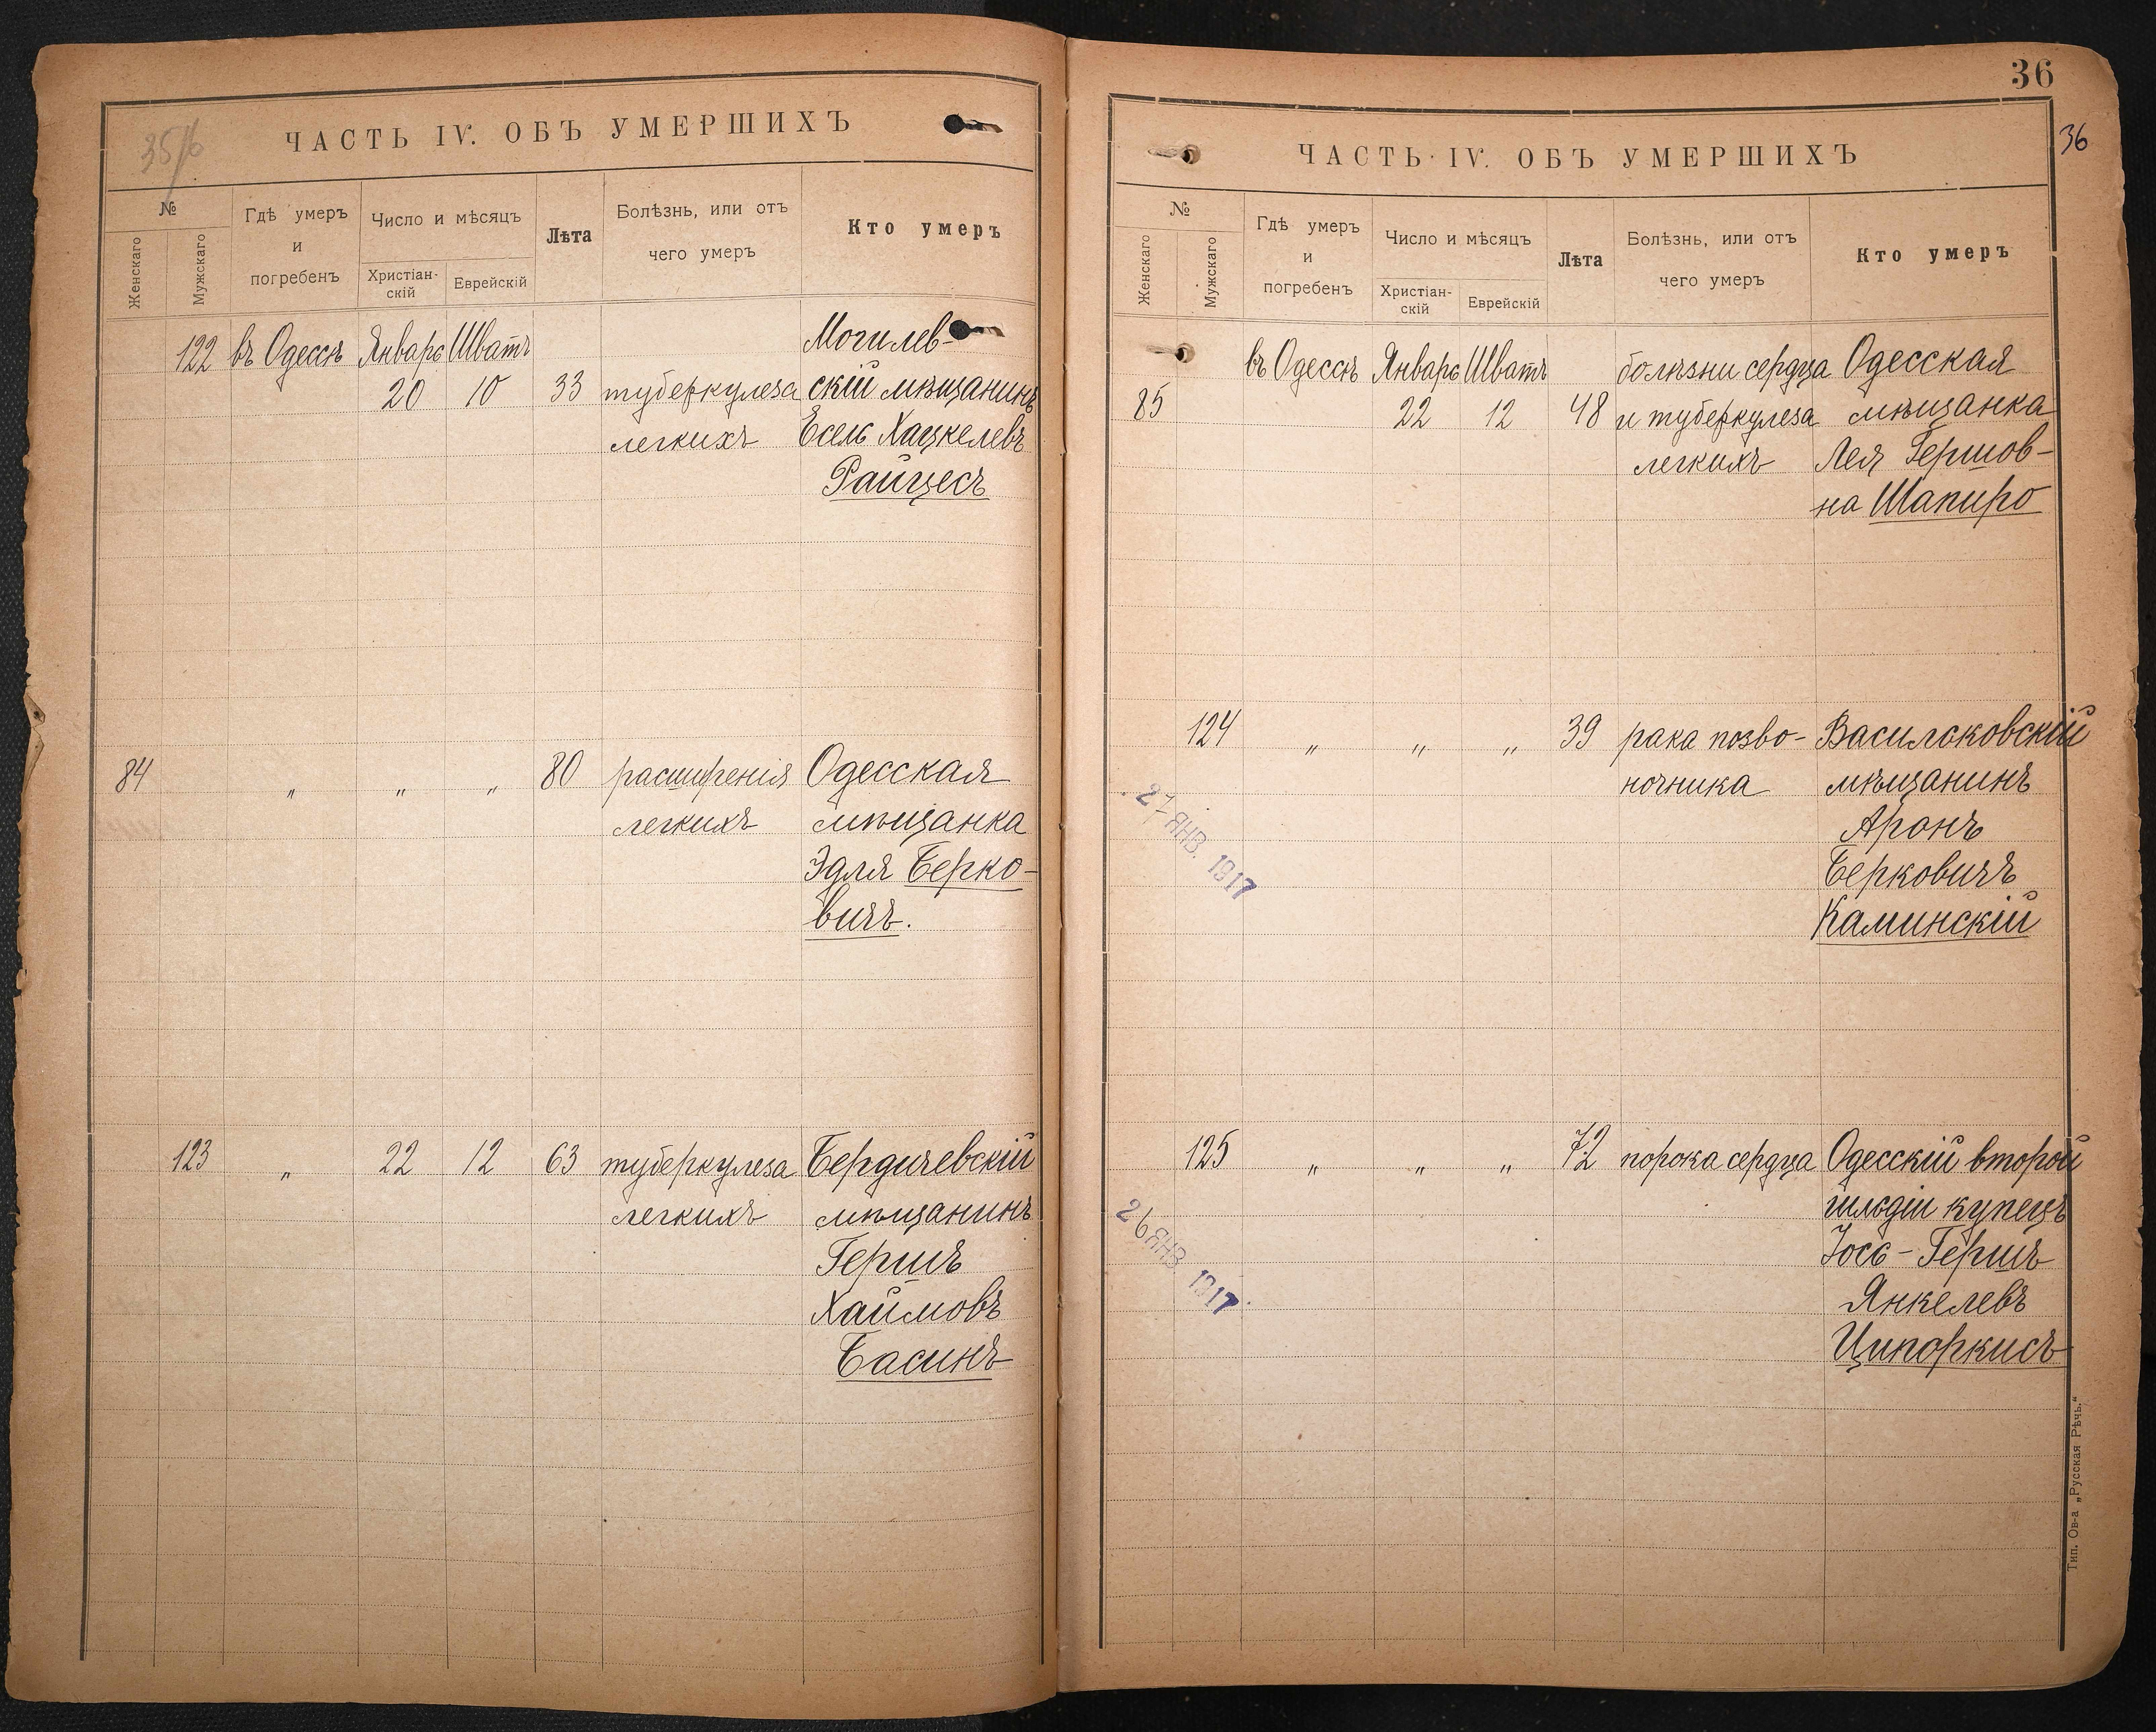 35/б
ЧАСТЬ IV. ОБЪ УМЕРШИХЪ
№
Женскаго
Мужскаго
Гдѣ умеръ
и
погребенъ
Число и мѣсяцъ
Христіан-
скій
Еврейскій
Лѣта
Болѣзнь, или отъ
чего умеръ
Кто умеръ
122 въ Одессѣ Январь Шватъ Могилев-
20 10 33 туберкулеза скій мѣщанинъ
легкихъ Есель Хацкелевъ
Райцесъ
84 " " " 80 расширенія Одесская
легкихъ мѣщанка
Эдля Берко-
вичъ.
123 " 22 12 63 туберкулеза Бердичевскій
легкихъ мѣщанинъ
Гершъ
Хаимовъ
Басинъ
36
36
ЧАСТЬ IV. ОБЪ УМЕРШИХЪ
№
Женскаго
Мужскаго
Гдѣ умеръ
и
погребенъ
Число и мѣсяцъ
Христіан-
скій
Еврейскій
Лѣта
Болѣзнь, или отъ
чего умеръ
Кто умеръ
въ Одессѣ Январь Шватъ болѣзни сердца Одесская
85 22 12 48 и туберкулеза мѣщанка
легкихъ Лея Гершов-
на Шапиро
124 " " " 39 рака позво- Васильковскій
ночника мѣщанинъ
Аронъ
Берковичъ
Каминскій
27 ЯНВ. 1917
125 " " " 72 порока сердца Одесскій второй
гильдіи купецъ
Іось-Гершъ
Янкелевъ
Ципоркисъ
26 ЯНВ 1917
Тип. Ов-а „Русская Рѣчь."